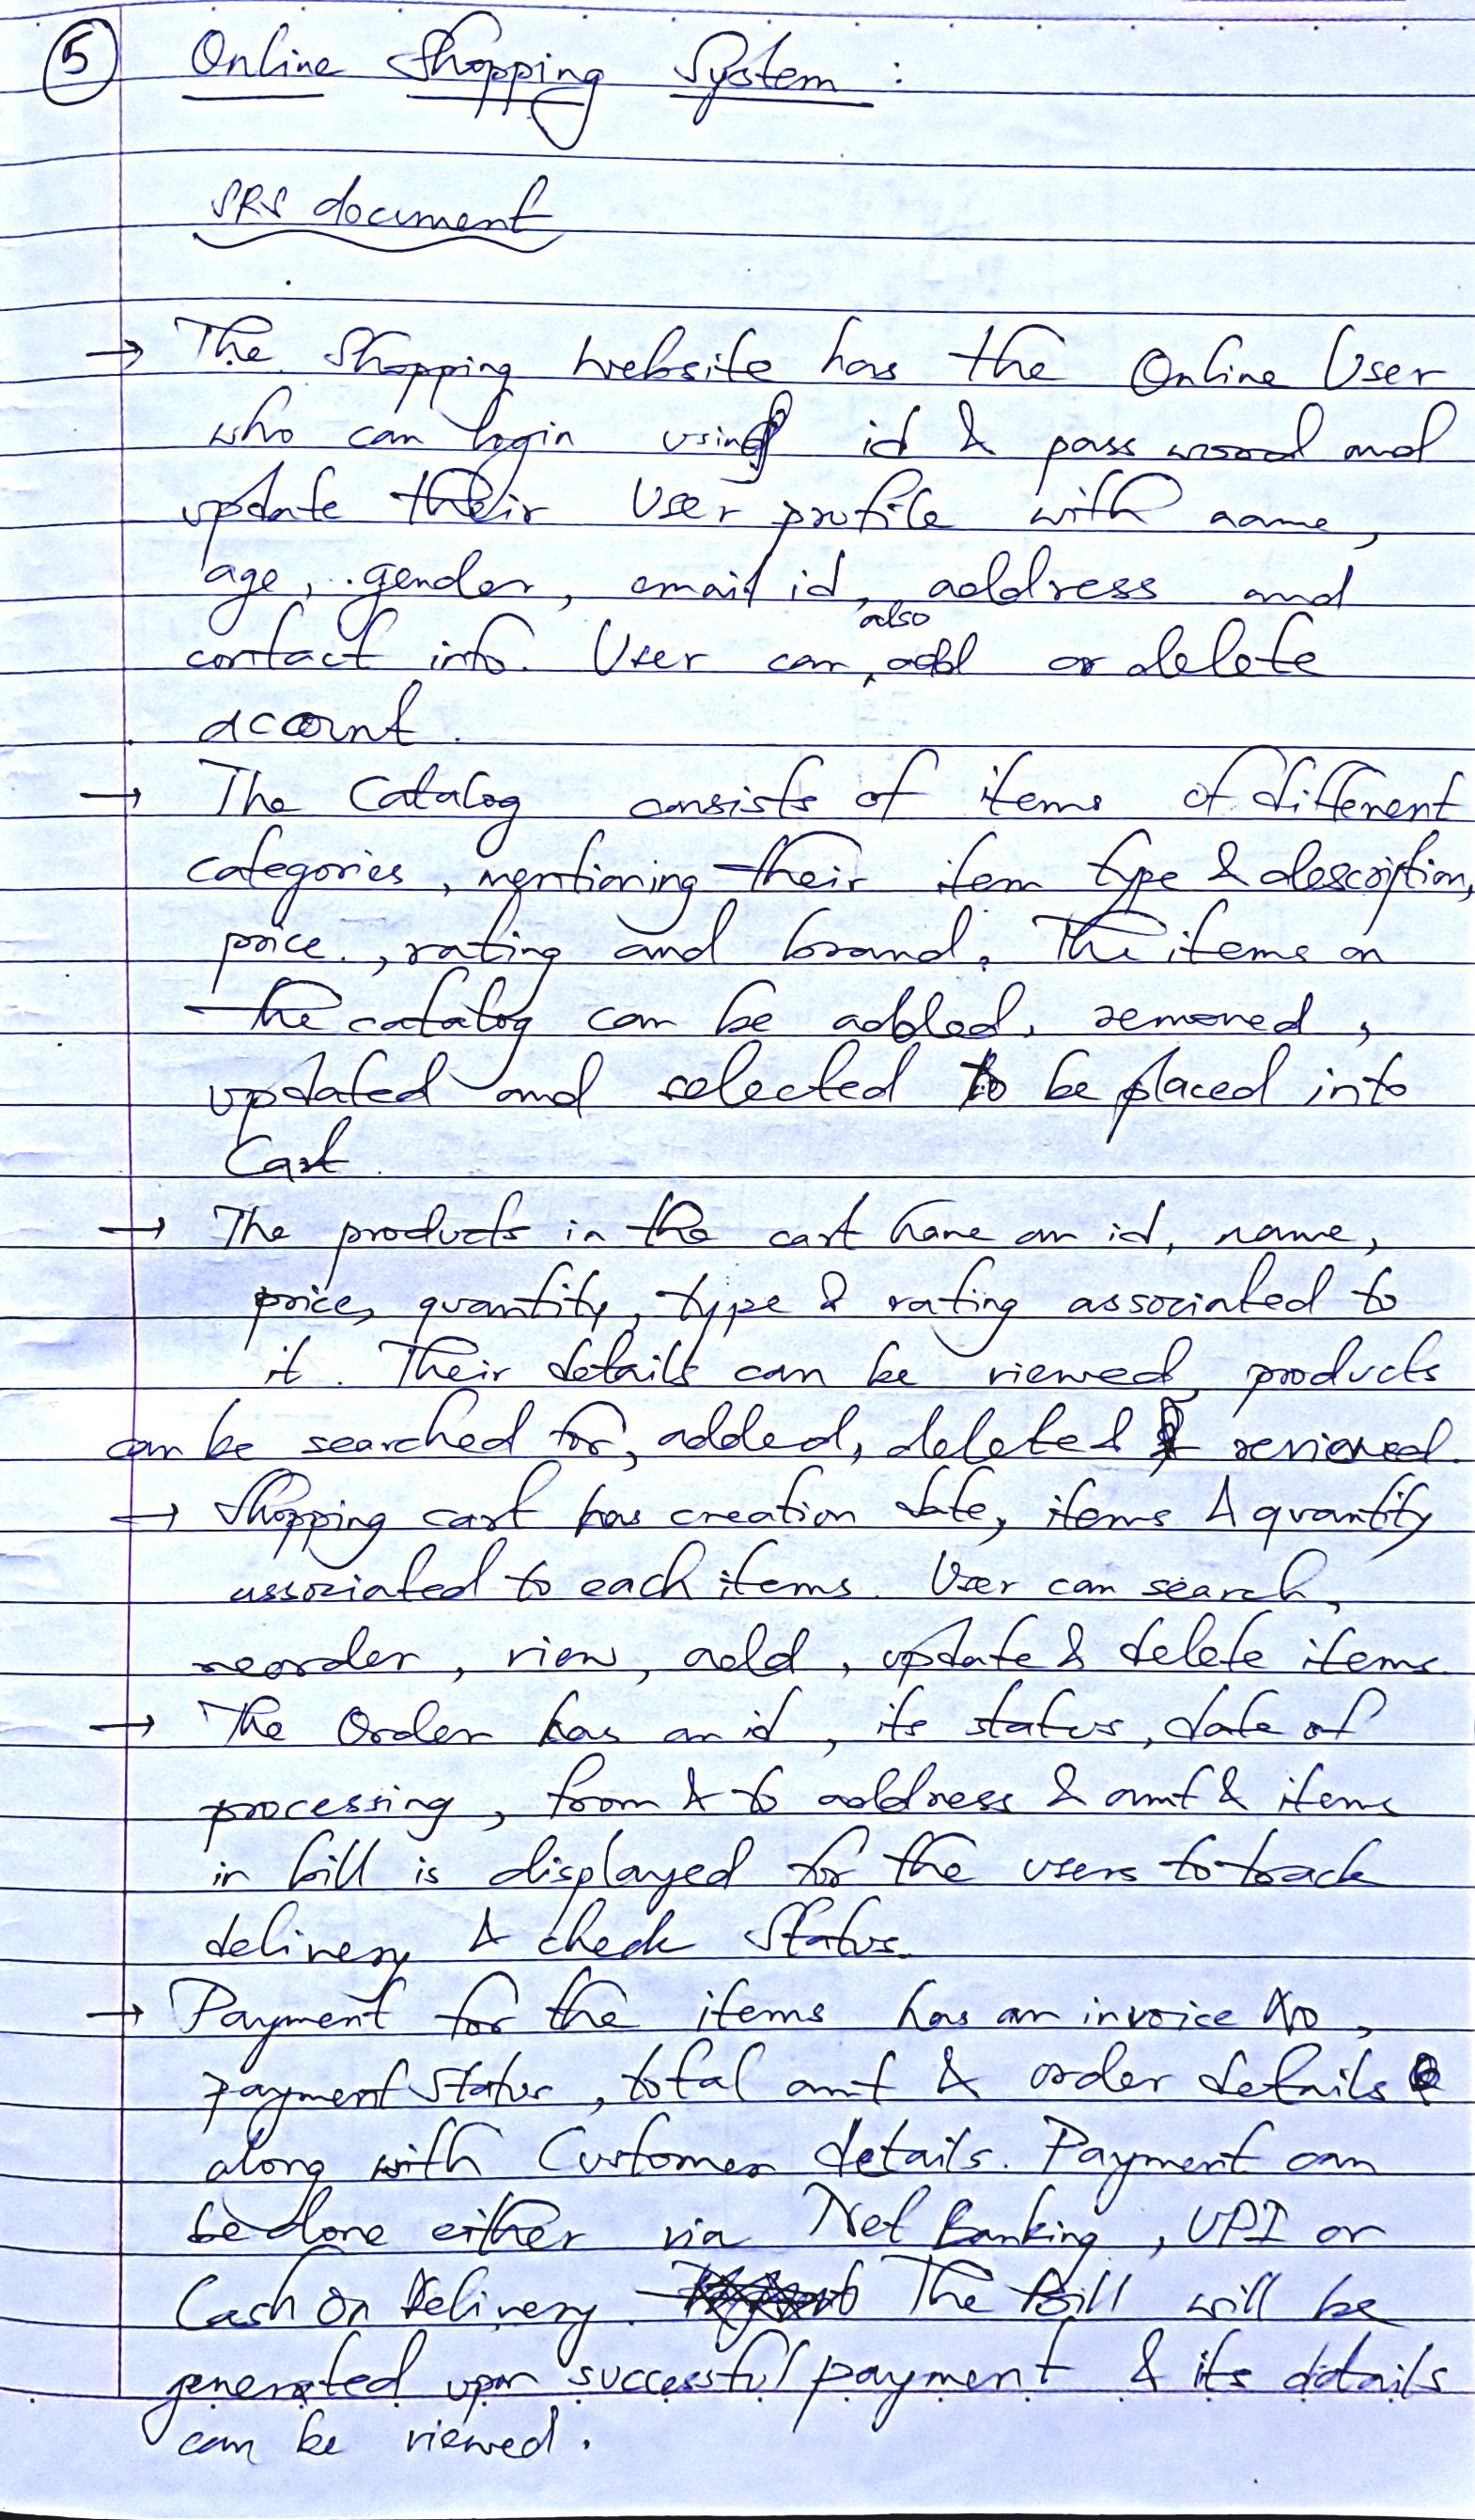 5 Online Shopping System :
SRS document
→ The Shopping website has the Online User
who can login using id & password and
update their User profile with name,
age, gender, email id, address and
contact info. User can also add or delete
account.
→ The Catalog consists of items of different
categories, mentioning their item type & description,
price, rating and brand. The items on
the catalog can be added, removed,
updated and selected to be placed into
Cart.
→ The products in the cart have an id, name,
price, quantity, type & rating associated to
it. Their details can be viewed, products
can be searched for, added, deleted & reviewed.
→ Shopping cart has creation date, items & quantity
associated to each items. User can search,
reorder, view, add, update & delete items.
→ The Order has an id, its status, date of
processing, from & to address & amt & items
in bill is displayed for the users to track
delivery & check Status.
→ Payment for the items has an invoice No,
payment status, total amt & order details
along with Customer details. Payment can
be done either via Net Banking, UPI or
Cash On Delivery. The Bill will be
generated upon successful payment & its details
can be viewed.